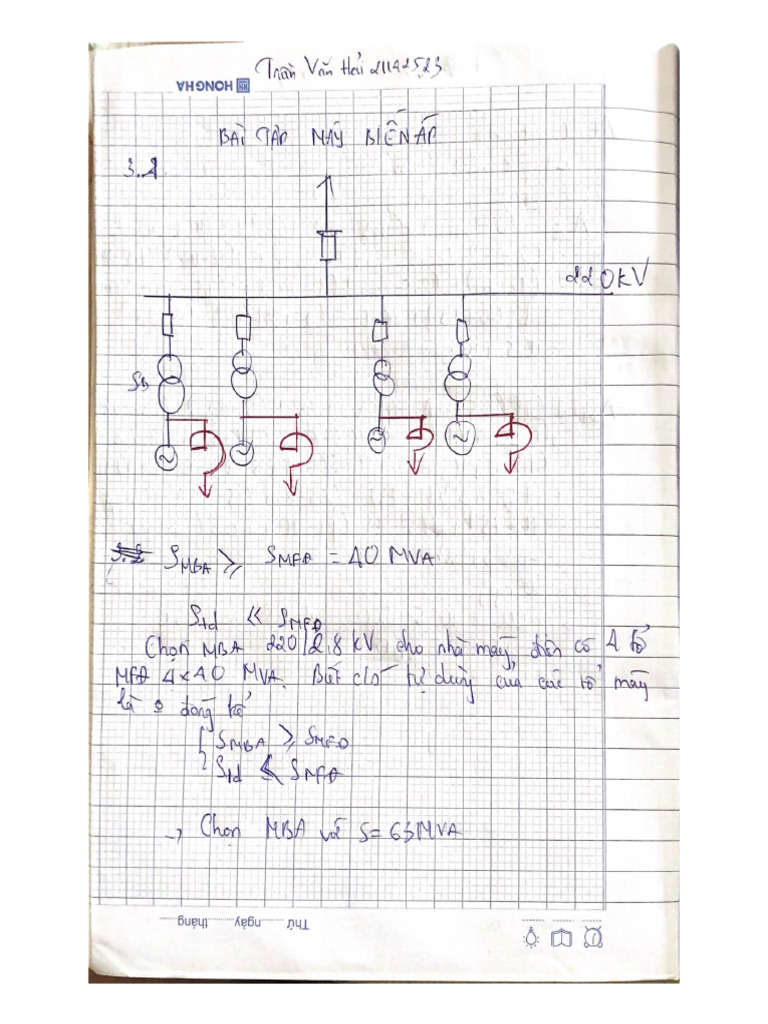 Trần Văn Hải 21142523
HONGHA
BÀI TẬP MÁY BIẾN ÁP
3.1
220kV
SB
~ ~ ~ ~
SMBA ≥ SMFĐ = 40 MVA
Std << SMFĐ
Chọn MBA 220/2,8 kV cho nhà máy điện có 4 tổ
MFĐ 4x40 MVA. Biết cs tự dùng của các tổ máy
là o đáng kể
SMBA ≥ SMFĐ
Std << SMFĐ
→ Chọn MBA với S = 63MVA
Thứ ........ngày ........tháng ........